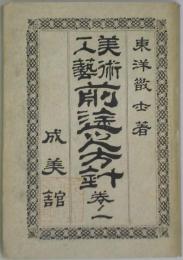 東洋散士著
美術
工藝
前途之方針 巻ノ一
成美館